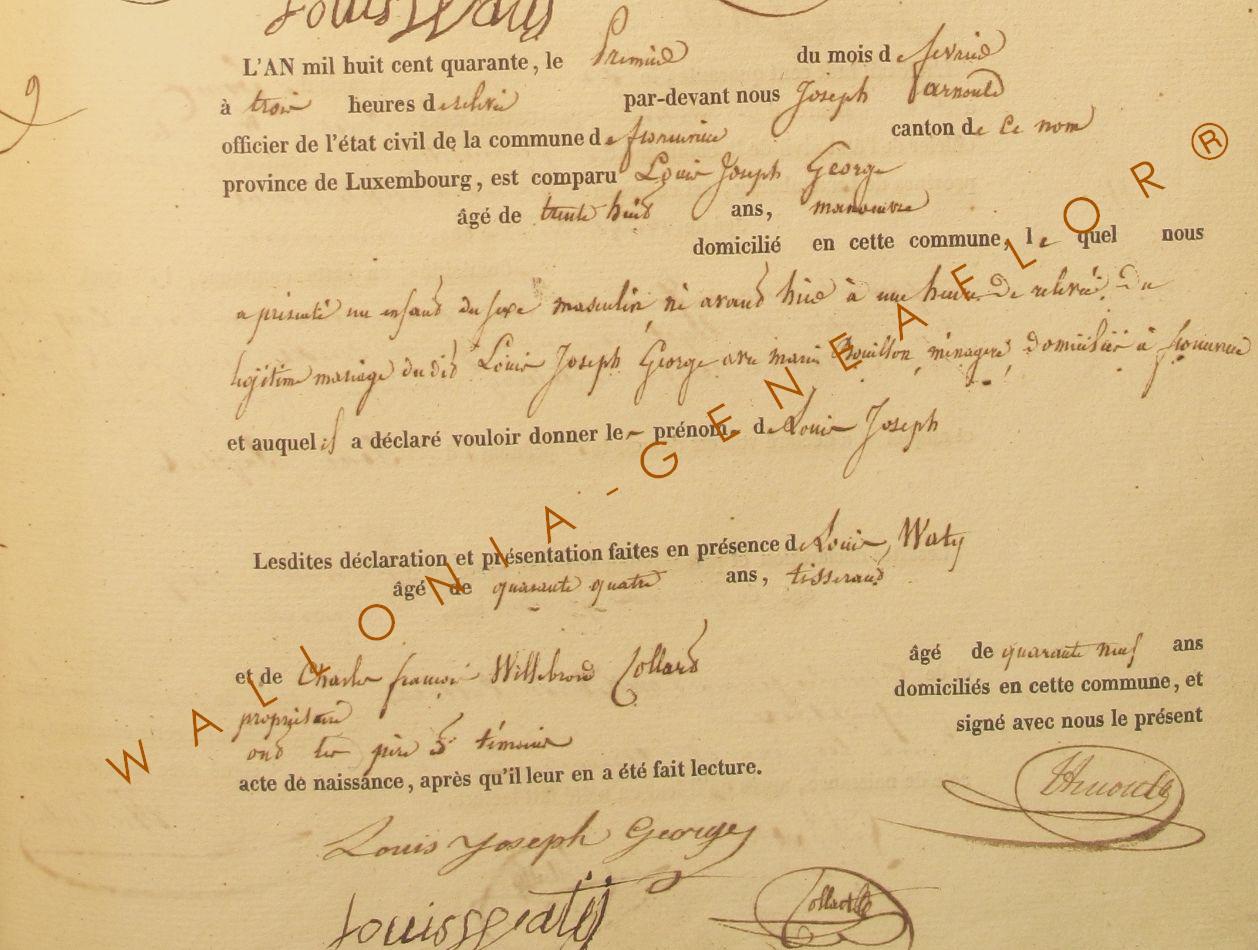 Louis Waty
L'AN mil huit cent quarante, le Premier du mois de fevrier
à trois heures de relevée par-devant nous Joseph Parnould
officier de l'état civil de la commune de canton de Ce nom
province de Luxembourg, est comparu Louis Joseph George
âgé de trente huit ans, manouvre
domicilié en cette commune, le quel nous
a présenté un enfant du sexe masculin né avant hier à une heure de relevée, du
legitime mariage dudit Louis Joseph George avec marie Bouillon ménagere, domiciliée à
et auquel il a déclaré vouloir donner le prénom de Louis Joseph
Lesdites déclaration et présentation faites en présence de Louis Waty
âgé de quarante quatre ans, tisserand
et de Charles françois Willebrord Collard âgé de quarante neuf ans
propriétaire domiciliés en cette commune, et
ont les père et témoins signé avec nous le présent
acte de naissance, après qu'il leur en a été fait lecture.
Louis Joseph George
Louis Waty Collard
WALLONIA-GENEAFELOR®